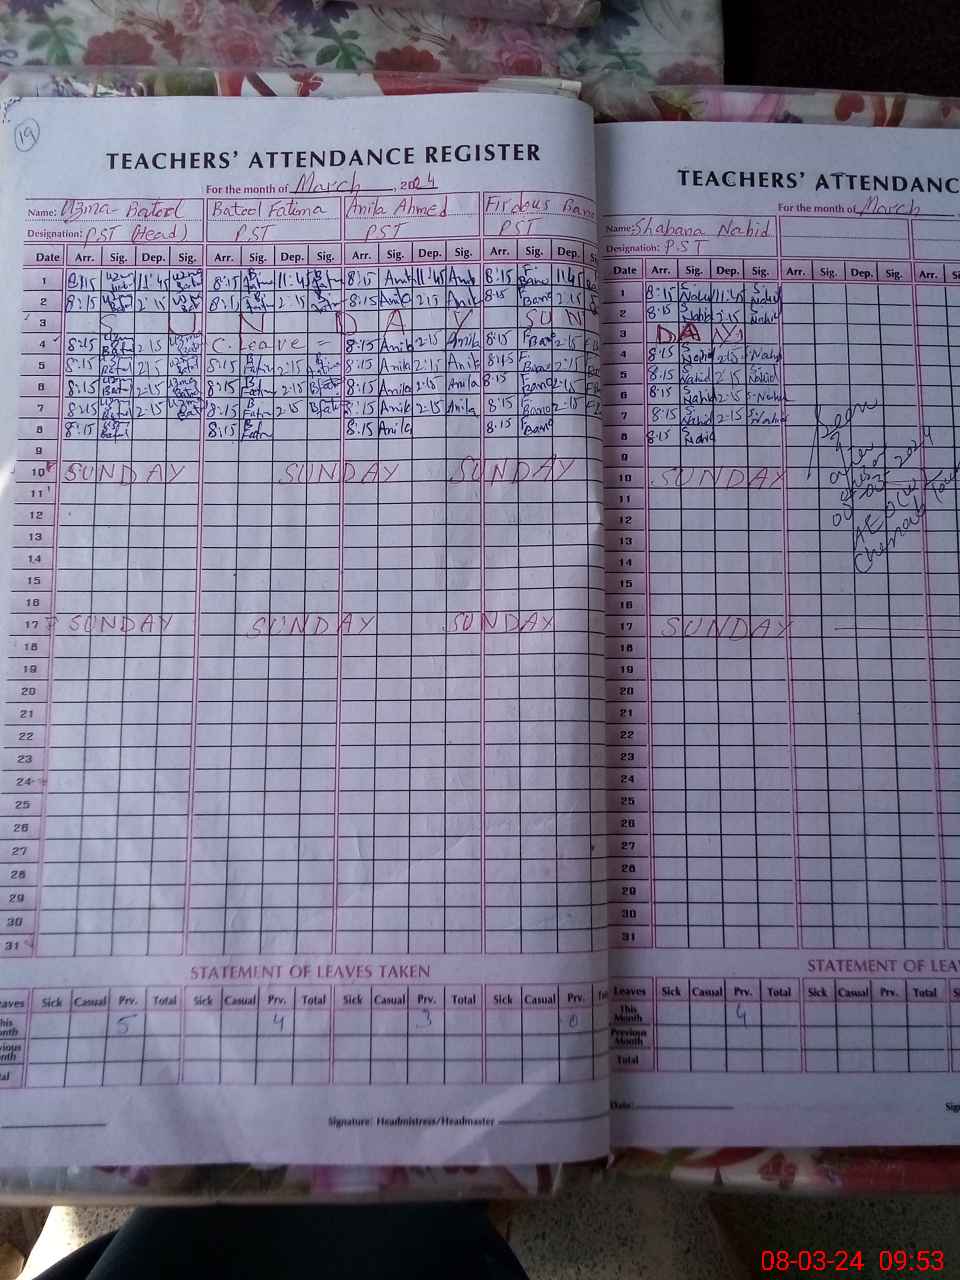 19
TEACHERS' ATTENDANCE REGISTER
For the month of March, 2024
Name: Uzma Batool Batool Fatima Anila Ahmed Firdous Bano
Designation: PST (Head) PST PST PST
Date Arr. Sig. Dep. Sig. Arr. Sig. Dep. Sig. Arr. Sig. Dep. Sig. Arr. Sig. Dep.
1 8:15 11:45 8:15 11:45 8:15 Anila 11:45 Anila 8:15 F. Bano 11:45
2 8:15 2:15 8:15 2:15 8:15 Anila 2:15 Anila 8:15 F Bano 2:15
3 S U N D A Y SUN
4 8:15 2:15 C. Leave - 8:15 Anila 2:15 Anila 8:15 F Bano 2:15
5 8:15 2:15 8:15 2:15 8:15 Anila 2:15 Anila 8:15 F Bano 2:15
6 8:15 2:15 8:15 2:15 8:15 Anila 2:15 Anila 8:15 F Bano 2:15
7 8:15 2:15 8:15 2:15 8:15 Anila 2:15 Anila 8:15 F Bano 2:15
8 8:15 8:15 8:15 Anila 8:15 F Bano
9
10 SUNDAY SUNDAY SUNDAY
11
12
13
14
15
16
17 SUNDAY SUNDAY SUNDAY
18
19
20
21
22
23
24
25
26
27
28
29
30
31
STATEMENT OF LEAVES TAKEN
eaves Sick Casual Prv. Total Sick Casual Prv. Total Sick Casual Prv. Total Sick Casual Prv.
This Month 5 4 3 0
vious nth
tal
Signature: Headmistress/Headmaster
TEACHERS' ATTENDANC
For the month of March,
Name: Shabana Nahid
Designation: PST
Date Arr. Sig. Dep. Sig. Arr. Sig. Dep. Sig. Arr.
1 8:15 S. Nahid 11:45 S. Nahid
2 8:15 S. Nahid 2:15 S. Nahid
3 DAY
4 8:15 S. Nahid 2:15 S. Nahid
5 8:15 S. Nahid 2:15 S. Nahid
6 8:15 S. Nahid 2:15 S. Nahid
7 8:15 S. Nahid 2:15 S. Nahid
8 8:15 S. Nahid
9
10 SUNDAY
11
12
13
14
15
16
17 SUNDAY
18
19
20
21
22
23
24
25
26
27
28
29
30
31
Seen
08-03-2024
AEO (W)
Chenab
STATEMENT OF LEA
Leaves Sick Casual Prv. Total Sick Casual Prv. Total Sick
This Month 4
Previous Month
Total
Date:
Sig
08-03-24 09:53